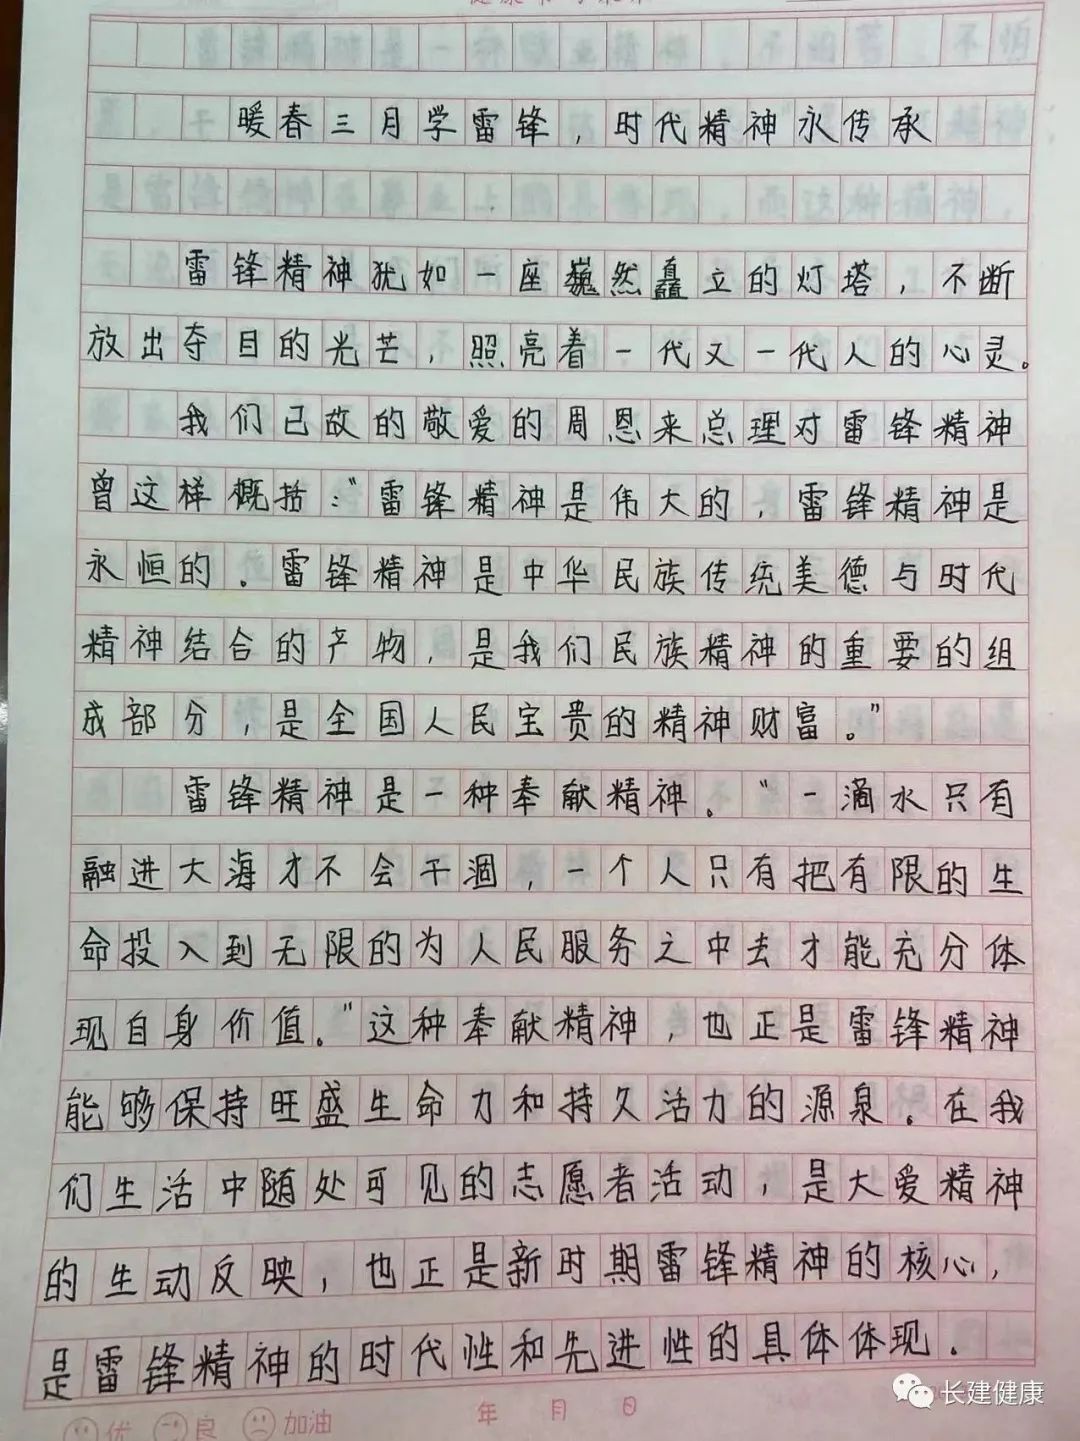 暖春三月学雷锋，时代精神永传承
雷锋精神犹如一座巍然矗立的灯塔，不断
放出夺目的光芒，照亮着一代又一代人的心灵。
我们已故的敬爱的周恩来总理对雷锋精神
曾这样概括：“雷锋精神是伟大的，雷锋精神是
永恒的．雷锋精神是中华民族传统美德与时代
精神结合的产物，是我们民族精神的重要的组
成部分，是全国人民宝贵的精神财富。”
雷锋精神是一种奉献精神．“一滴水只有
融进大海才不会干涸，一个人只有把有限的生
命投入到无限的为人民服务之中去才能充分体
现自身价值。”这种奉献精神，也正是雷锋精神
能够保持旺盛生命力和持久活力的源泉．在我
们生活中随处可见的志愿者活动，是大爱精神
的生动反映，也正是新时期雷锋精神的核心，
是雷锋精神的时代性和先进性的具体体现．
优 良 加油 年 月 日
长建健康